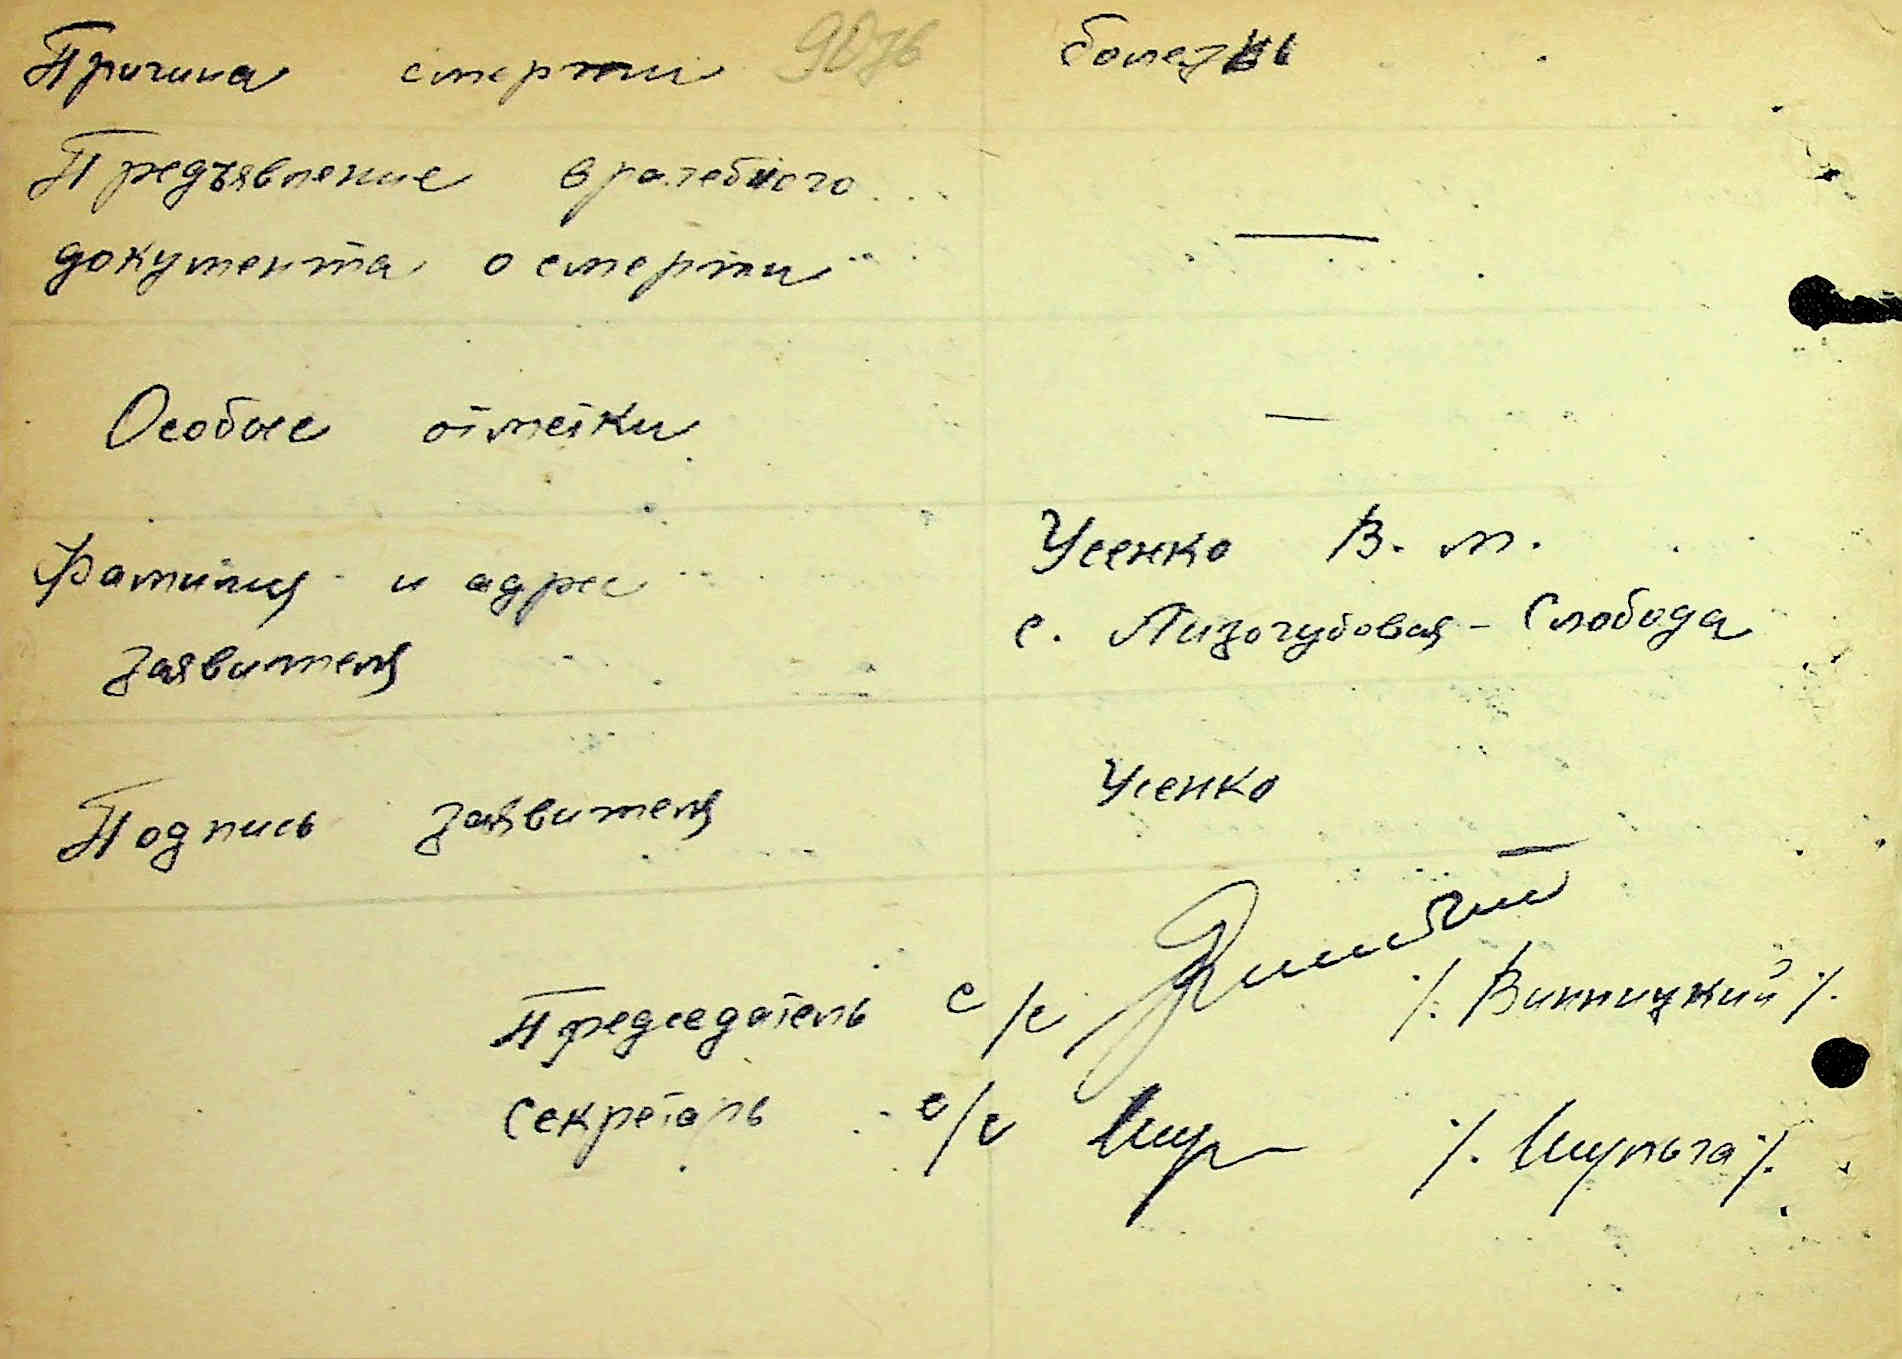 Причина смерти болезнь
Предъявление врачебного
документа о смерти —
Особые отметки —
Фамилия и адрес Усенко В. М.
заявителя с. Лизогубовая - Слобода
Подпись заявителя Усенко
Председатель с/с /. Винницкий /.
Секретарь с/с Шу /. Шульга /.